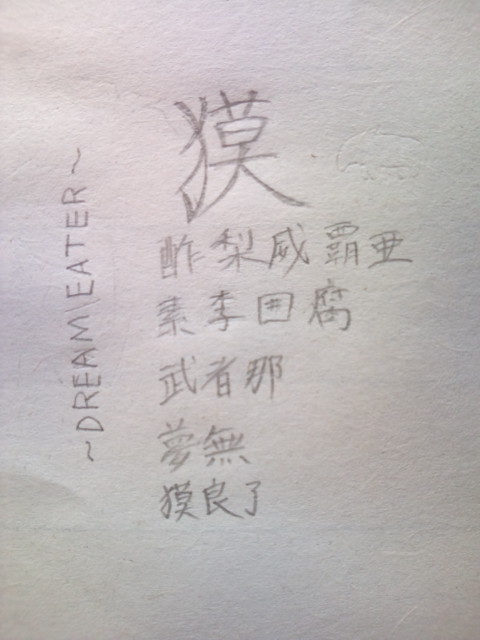 獏
酢梨威覇亜
素李囬腐
武者那
夢無
獏良了
~DREAM EATER~